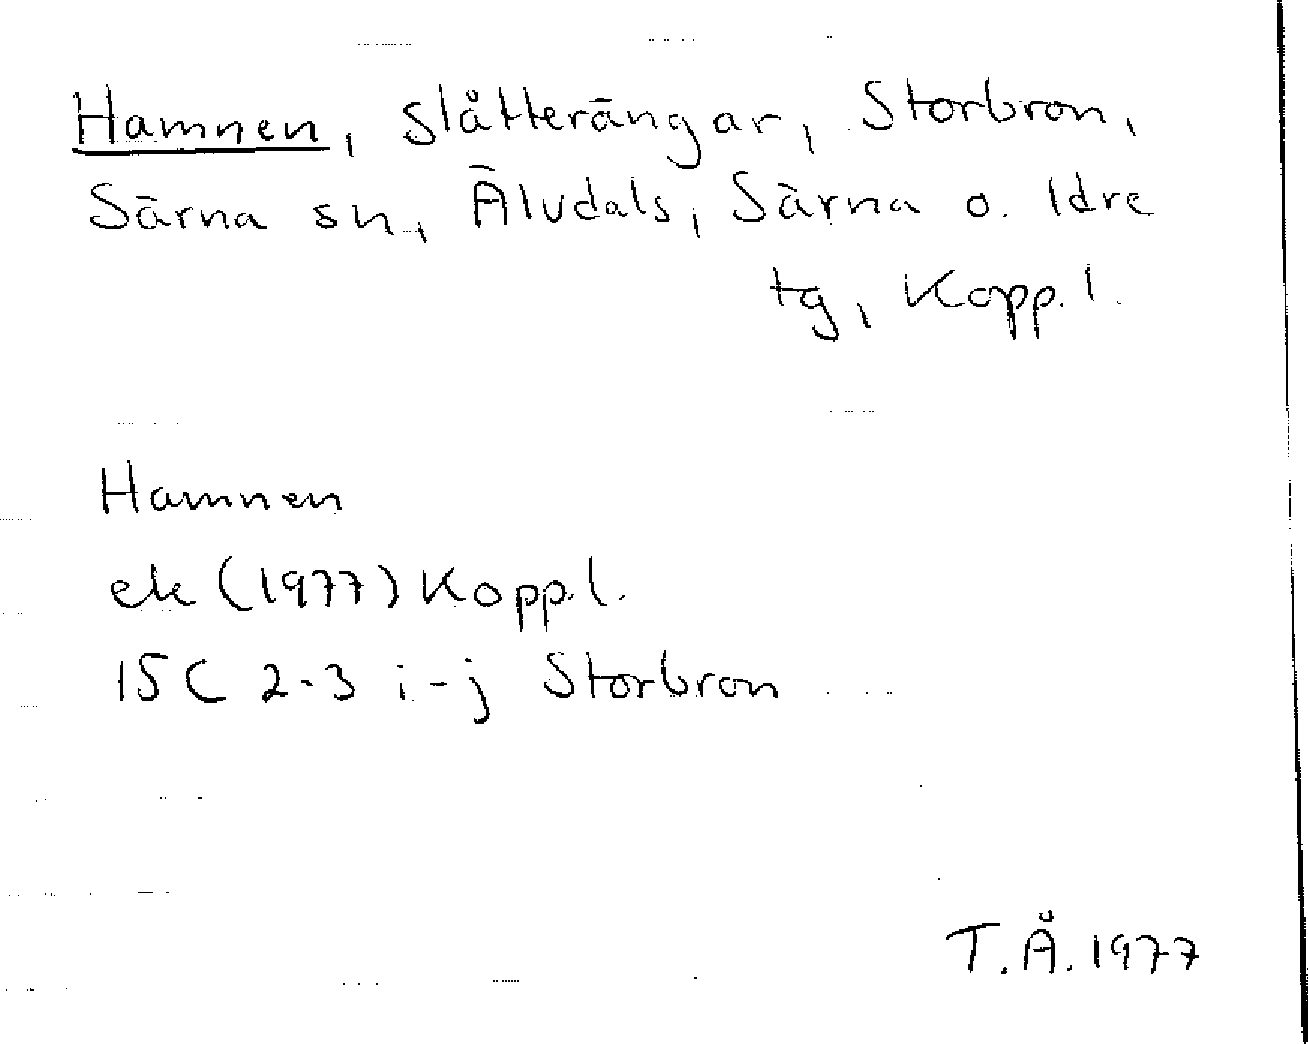 Hamnen, slåtterängar, Storbron,
Särna sn, Älvdals, Särna o. Idre
tg, Kopp. l.
Hamnen
ek (1977) Kopp. l.
15C 2-3 i-j Storbron
T.Å. 1977